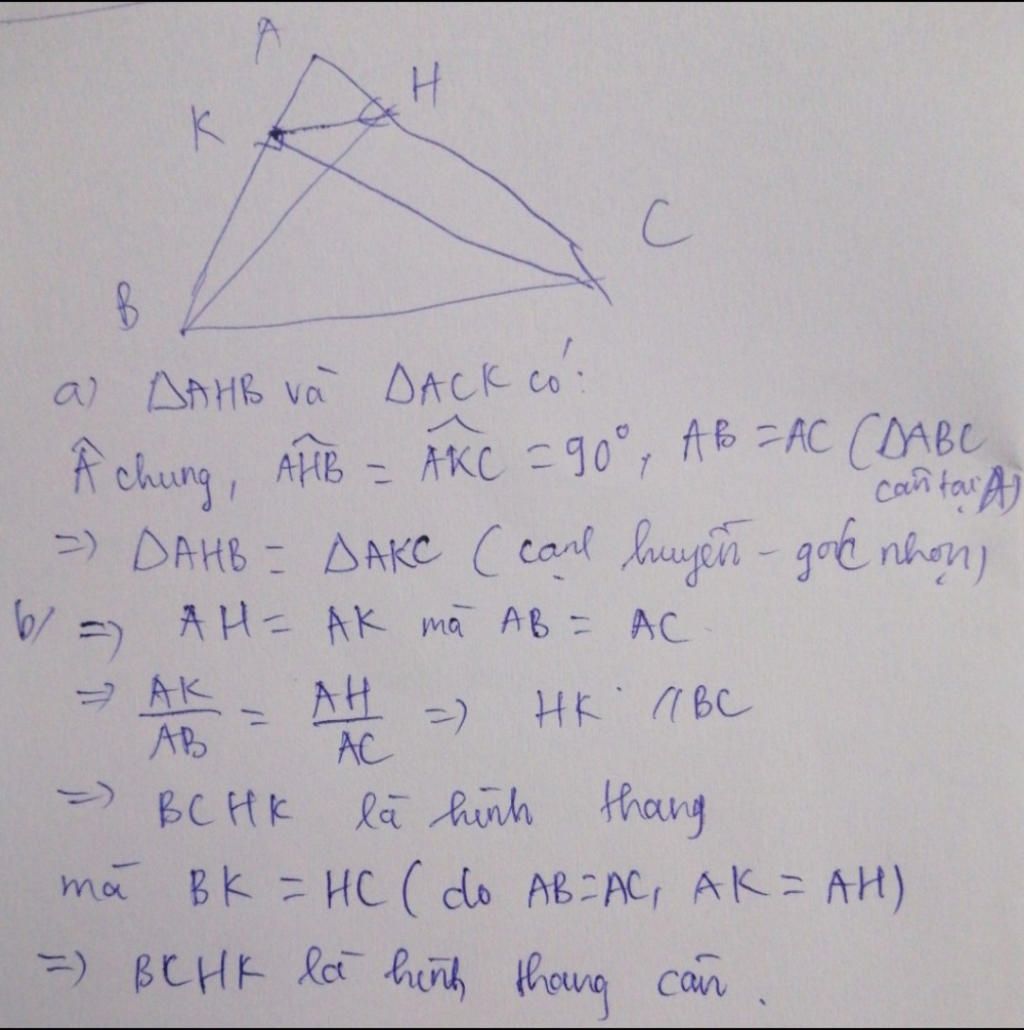 A
H
K
C
B
a) ΔAHB và ΔACK có:
Â chung, \widehat{AHB} = \widehat{AKC} = 90°, AB = AC (ΔABC
cân tại A)
=> ΔAHB = ΔAKC (cạnh huyền - góc nhọn)
b/ => AH = AK mà AB = AC
=> \frac{AK}{AB} = \frac{AH}{AC} => HK // BC
=> BCHK là hình thang
mà BK = HC (do AB=AC, AK = AH)
=> BCHK là hình thang cân.